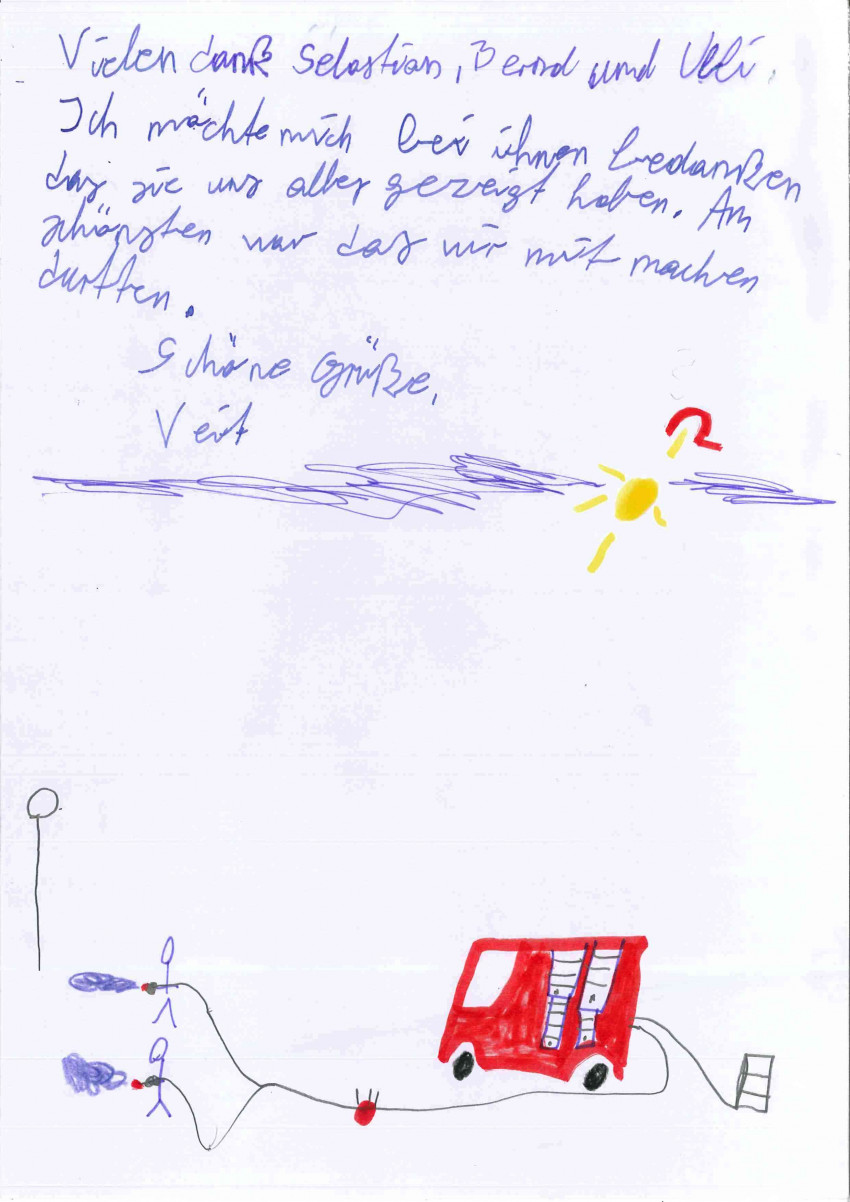 Vielen dank Sebastian, Bernd und Uli.
Ich möchte mich bei ihnen bedanken
das sie uns alles gezeigt haben. Am
schönsten war das wir mit machen
durften.
Schöne Grüße,
Veit